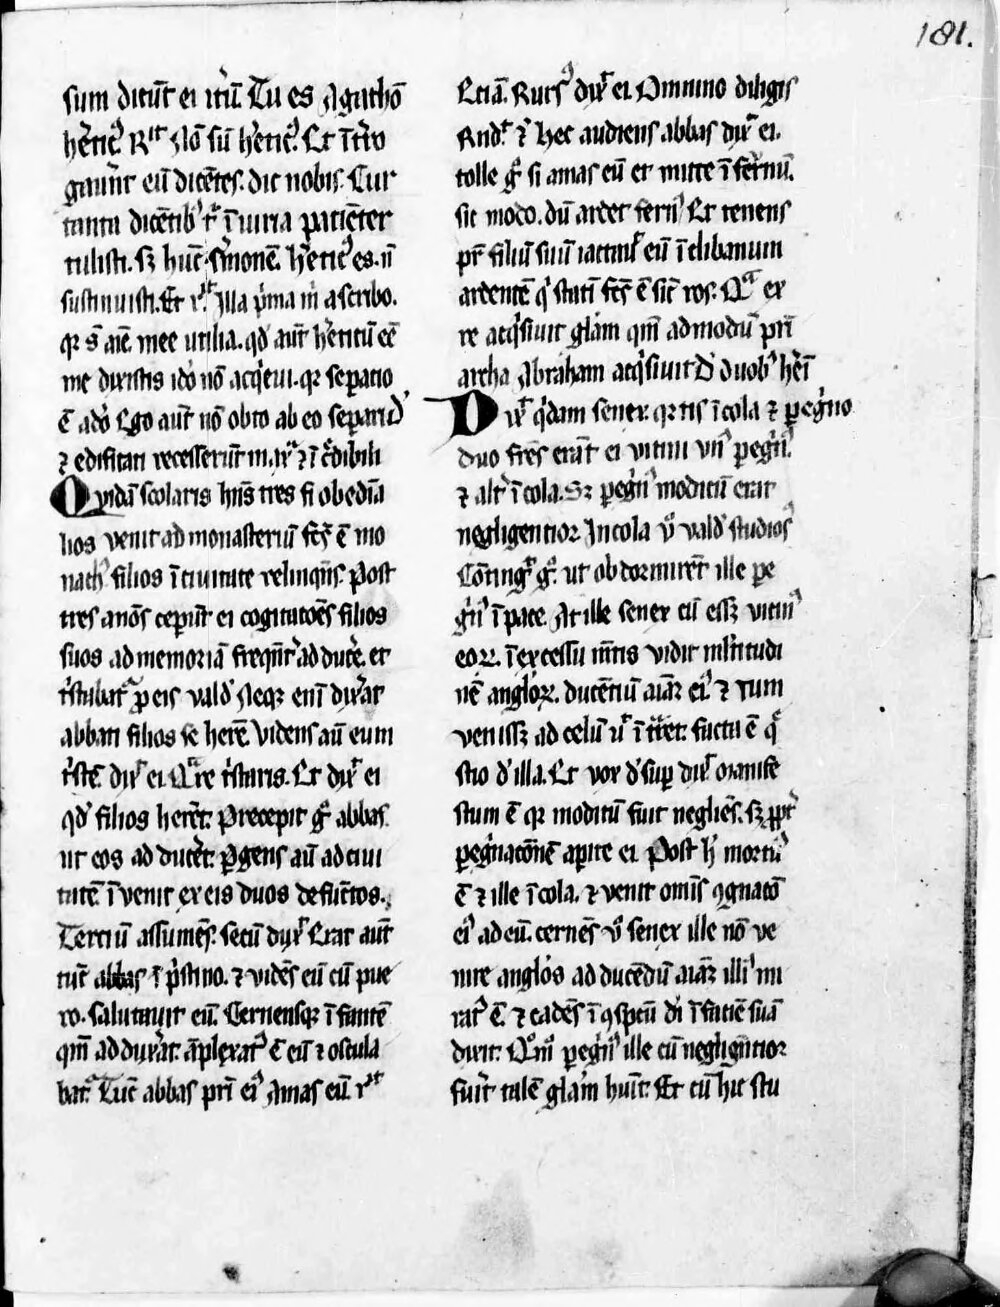 181.
sum dicūt ei itū Tu es Agathō
hetic᷒ Rͥt Nō sū hetic᷒. Et īt̄ro
gauert eū dicētes. dic nobis. Cur
tanta dicētib᷒ t᷒ ī iuria patiēter
tulisti. sꝫ hūc sm̄onē heretic᷒ es. ñ
sustinuisti. Et rͭ Illa p̄ma m̄ ascribo.
qꝛ s̄ aīe mee utilia. qd̓ aūt heticū eē
me dixistis idō nō acq̓eui. qꝛ separatio
ē a dō Ego aūt nō opto ab eo separari D̓
⁊ edificati recesserūt
Quidā scolaris hn̄s tres fi obediā
lios venit ad monasteriū fc̄s ē mo
nach᷒ filios ī ciuitate relinqn̄s. Post
tres anōs ceperūt ei cogitatoēs filios
suos ad memoriā freqn̄t᷑ ad duc̄e. et
t̓stabat᷑ ꝓ eis vald̓ Neqꝫ enī dix̓at
abbati filios se heꝛē Videns aū eum
t̓stē dix̓ ei. Qͣre t̓staris. Et dix̓ ei
qd̓ filios heret. Precepit g̓ abbas
ut eos ad duc̄et. ꝑgens aū ad ciui
tatē ī venit ex eis duos defūctos.
Terciū assumēs. secū dux̓ Erat aūt
tūc abbas ī p̓stino. ⁊ vidēs eū cū pue
ro. salutauit eū. Cernensqꝫ ī fantē
qm̄ ad dux̓at. āplexat᷒ ē eū ⁊ oscula
bat᷑. Tūc abbas pr̄i ei᷒ Amas eū. rͭ
Etiā. Rurs᷒ dix̓ ei. Omnino diligis
Rnd̓t ⁊ Hec audiens abbas dix̓ ei.
tolle g̓ si amas eū et mitte ī fornū.
sic modo. dū ardet forn᷒ Et tenens
pr̄ filiū suū iactauit eū ī clibanum
ardentē q̓ statī fc̄s ē sic̄ ros. Qͣ ex
re acq̓siuit gl̄am qm̄ admodū pr̄i
archa Abraham acq̓siuit D̓ duob᷒ her̄i
Dix̓ q̓dam senex. qꝛ tis īcola ⁊ ꝑegⁱno
duo frēs erāt ei vicini vn᷒ ꝑegⁱn᷒.
⁊ alt̓ īcola. Sꝫ ꝑegⁱn᷒ modicū erat
negligentior Incola v̓o vald̓ studios᷒
Cōtingͥt g̓. ut ob dormiret ille pe
gⁱn᷒ ī pace. At ille senex cū essꝫ vicin᷒
eoꝝ. ī excessu mētis vidit mltitudi
nē angloꝝ. ducētiū aīaꝫ ei᷒ ⁊ cum
venissꝫ ad celū ut īt̓ret. facta ē q̄
stio d̓ illa. Et vox d̓sup dix̓ manife
stum ē qꝛ modicū fuit neglīes. sꝫ ꝓpt̓
ꝑegⁱnacōnē apite ei. Post h̓ mortu᷒
ē ⁊ ille īcola. ⁊ venit omīs ꝯgnacō
ei᷒ ad eū. cernēs v̓o senex ille nō ve
nire anglos ad ducēdū aīaꝫ illi᷒ mi
rat᷒ ē. ⁊ cadēs ī ꝯspectū di ī faciē suā
dixit. Qͦm̄o ꝑegⁱn᷒ ille cū negligētior
fuit talē gl̄am huit. Et cū hic stu